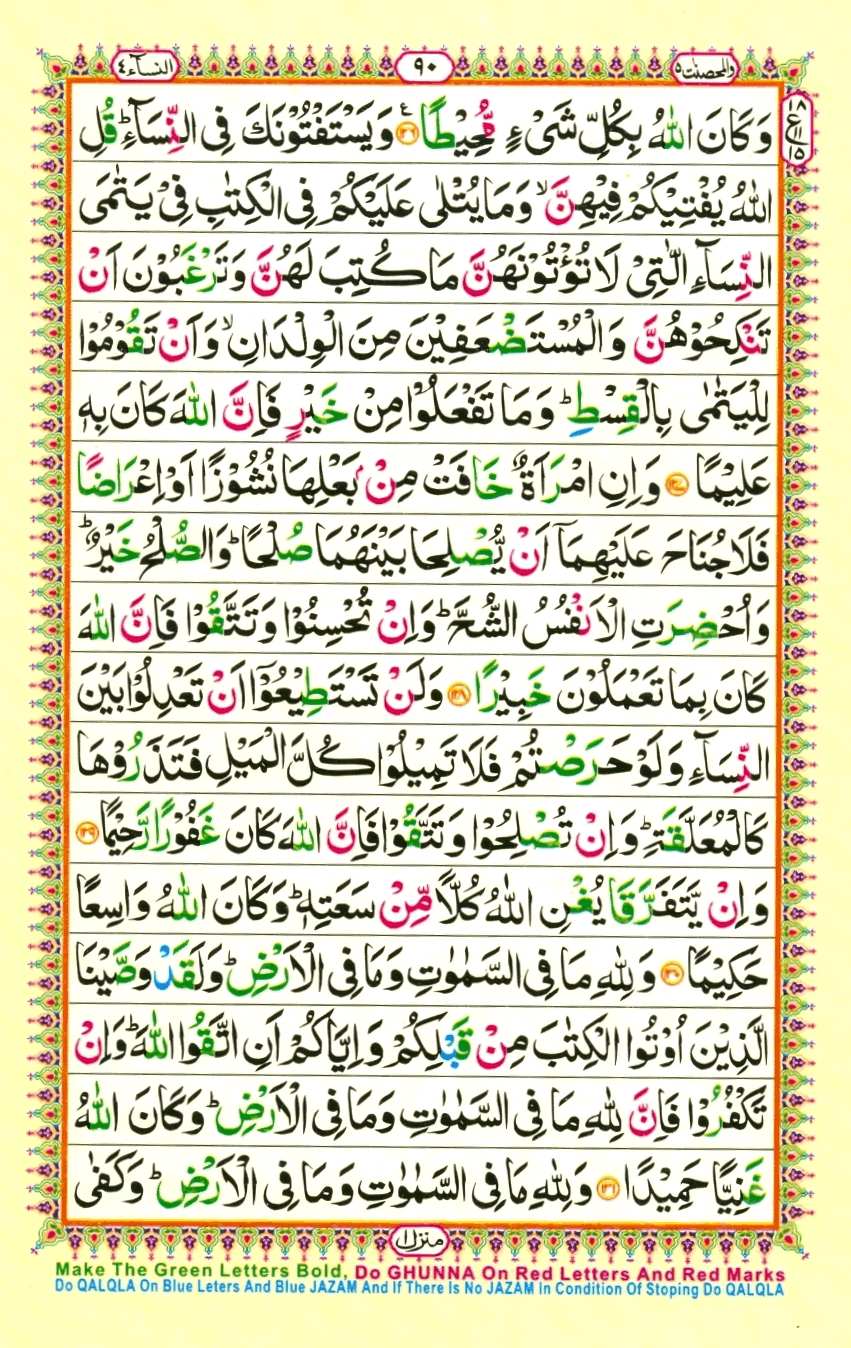 النسآء ٤
٩٠
والمحصنت ٥
١٨
ع
١٥
وَكَانَ اللّٰهُ بِكُلِّ شَیْءٍ مُّحِیْطًا ۧ۝۱۲۶ وَیَسْتَفْتُوْنَكَ فِی النِّسَآءِ ؕ قُلِ
اللّٰهُ یُفْتِیْكُمْ فِیْهِنَّ ۙ وَمَا یُتْلٰی عَلَیْكُمْ فِی الْكِتٰبِ فِیْ یَتٰمَی
النِّسَآءِ الّٰتِیْ لَا تُؤْتُوْنَهُنَّ مَا كُتِبَ لَهُنَّ وَتَرْغَبُوْنَ اَنْ
تَنْكِحُوْهُنَّ وَالْمُسْتَضْعَفِیْنَ مِنَ الْوِلْدَانِ ۙ وَاَنْ تَقُوْمُوْا
لِلْیَتٰمٰی بِالْقِسْطِ ؕ وَمَا تَفْعَلُوْا مِنْ خَیْرٍ فَاِنَّ اللّٰهَ كَانَ بِهٖ
عَلِیْمًا ۝۱۲۷ وَاِنِ امْرَاَةٌ خَافَتْ مِنْۢ بَعْلِهَا نُشُوْزًا اَوْ اِعْرَاضًا
فَلَا جُنَاحَ عَلَیْهِمَاۤ اَنْ یُّصْلِحَا بَیْنَهُمَا صُلْحًا ؕ وَالصُّلْحُ خَیْرٌ ؕ
وَاُحْضِرَتِ الْاَنْفُسُ الشُّحَّ ؕ وَاِنْ تُحْسِنُوْا وَتَتَّقُوْا فَاِنَّ اللّٰهَ
كَانَ بِمَا تَعْمَلُوْنَ خَبِیْرًا ۝۱۲۸ وَلَنْ تَسْتَطِیْعُوْۤا اَنْ تَعْدِلُوْا بَیْنَ
النِّسَآءِ وَلَوْ حَرَصْتُمْ فَلَا تَمِیْلُوْا كُلَّ الْمَیْلِ فَتَذَرُوْهَا
كَالْمُعَلَّقَةِ ؕ وَاِنْ تُصْلِحُوْا وَتَتَّقُوْا فَاِنَّ اللّٰهَ كَانَ غَفُوْرًا رَّحِیْمًا ۝۱۲۹
وَاِنْ یَّتَفَرَّقَا یُغْنِ اللّٰهُ كُلًّا مِّنْ سَعَتِهٖ ؕ وَكَانَ اللّٰهُ وَاسِعًا
حَكِیْمًا ۝۱۳۰ وَلِلّٰهِ مَا فِی السَّمٰوٰتِ وَمَا فِی الْاَرْضِ ؕ وَلَقَدْ وَصَّیْنَا
الَّذِیْنَ اُوْتُوا الْكِتٰبَ مِنْ قَبْلِكُمْ وَاِیَّاكُمْ اَنِ اتَّقُوا اللّٰهَ ؕ وَاِنْ
تَكْفُرُوْا فَاِنَّ لِلّٰهِ مَا فِی السَّمٰوٰتِ وَمَا فِی الْاَرْضِ ؕ وَكَانَ اللّٰهُ
غَنِیًّا حَمِیْدًا ۝۱۳۱ وَلِلّٰهِ مَا فِی السَّمٰوٰتِ وَمَا فِی الْاَرْضِ ؕ وَكَفٰی
منزل ١
Make The Green Letters Bold, Do GHUNNA On Red Letters And Red Marks
Do QALQLA On Blue Leters And Blue JAZAM And If There Is No JAZAM In Condition Of Stoping Do QALQLA